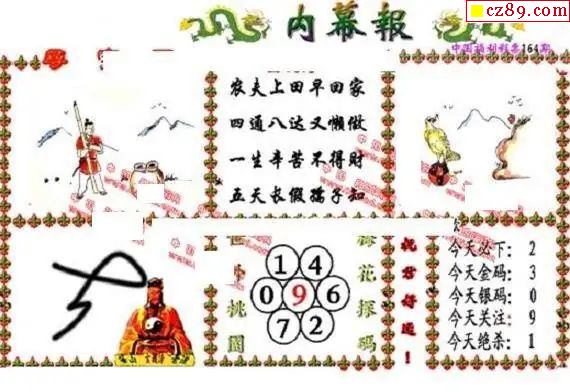 cz89.com
内幕報
中国福利彩票164期
农夫上田早回家
四通八达又懒做
一生辛苦不得財
五天长假孺子知
世外桃園
1 4
0 9 6
7 2
梅花探码
祝君好运！
今天必下： 2
今天金码： 3
今天银码： 0
今天关注： 9
今天绝杀： 1